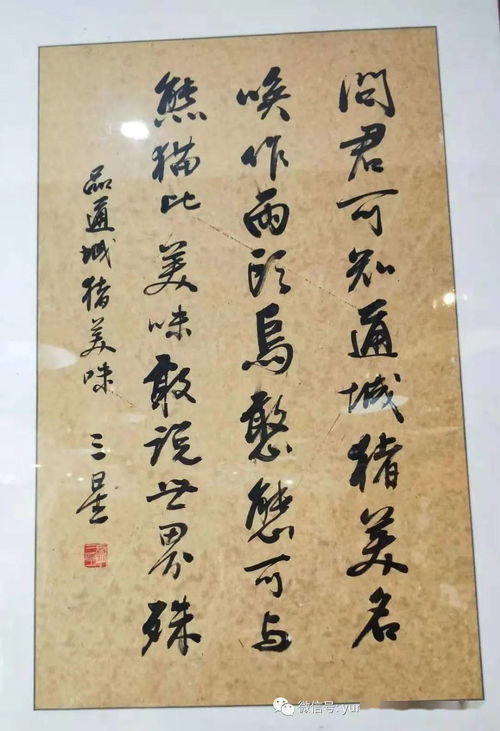 问君可知通城猪美名
唤作两头乌憨态可与
熊猫比美味敢说世界殊
品通城猪美味 三星
微信号: yur